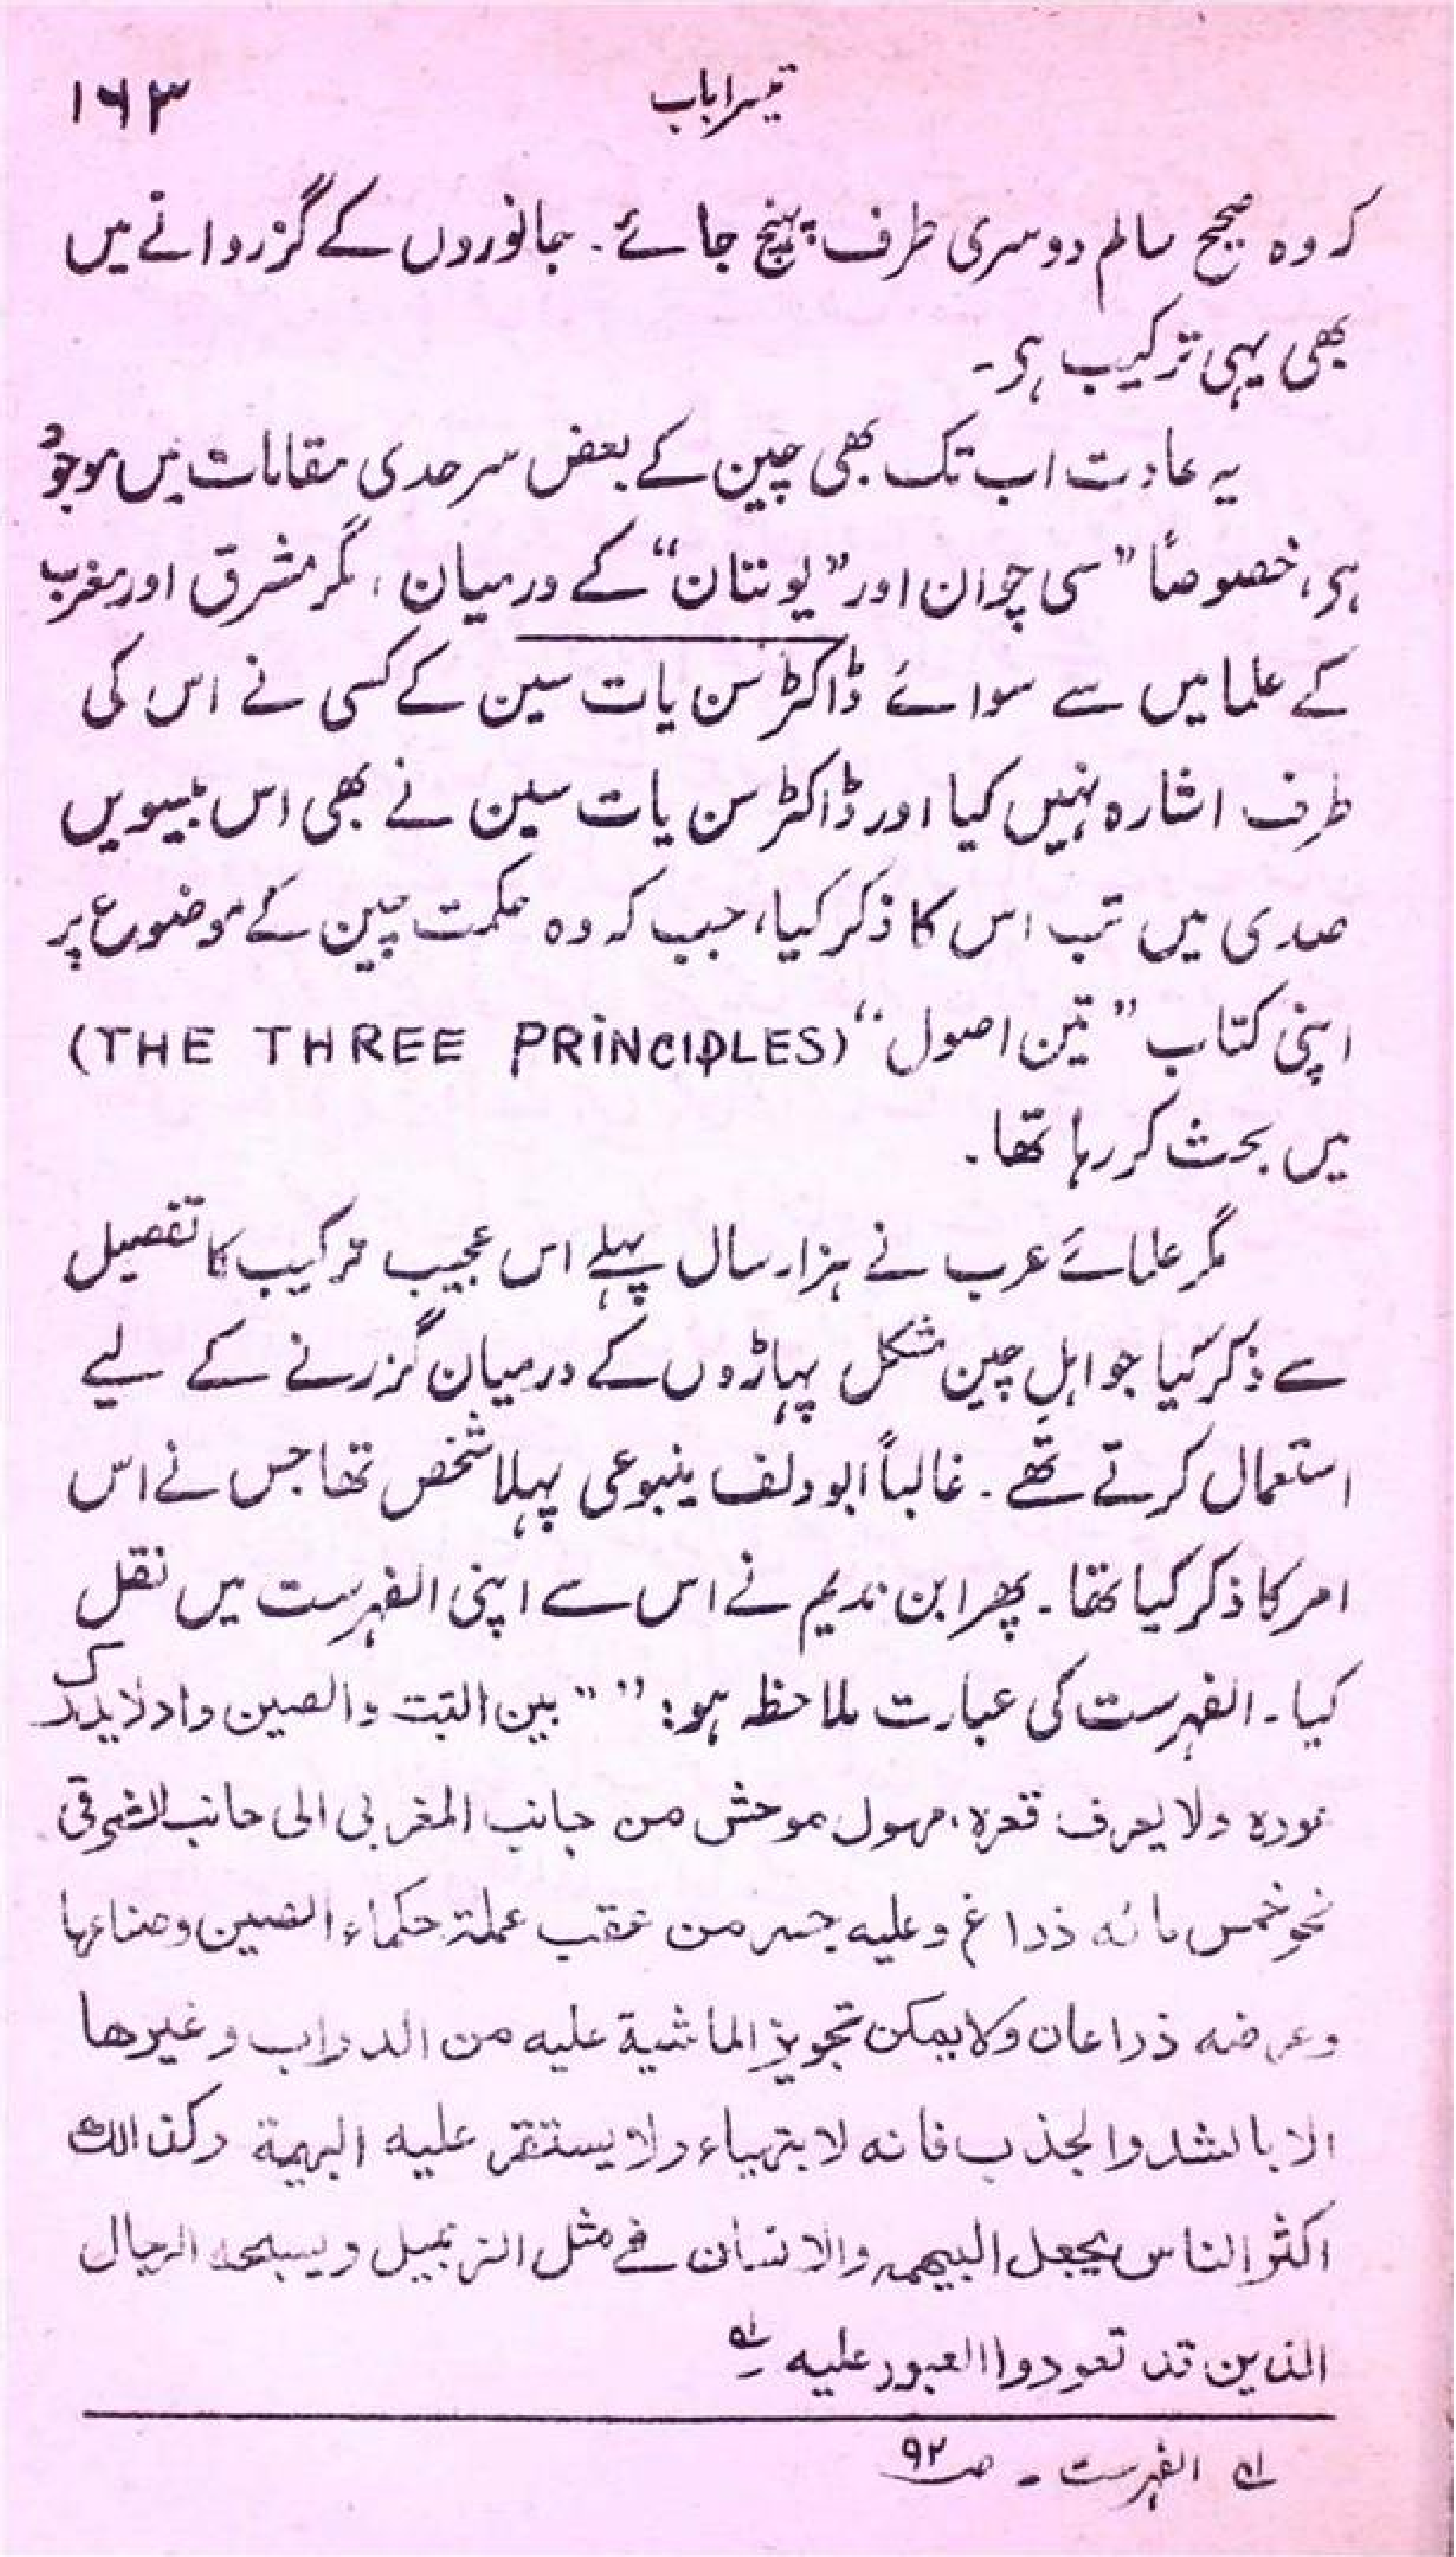 تیسرا باب ۱۶۳
کہ وہ صحیح سالم دوسری طرف پہنچ جائے۔ جانوروں کے گزروانے میں
بھی یہی ترکیب ہی۔
یہ عادت اب تک بھی چین کے بعض سرحدی مقامات میں موجود
ہی، خصوصاً ”سی چوان اور ”یونتان“ کے درمیان، مگر مشرق اور مغرب
کے علما میں سے سوائے ڈاکٹر سن یات سین کے کسی نے اس کی
طرف اشارہ نہیں کیا اور ڈاکٹر سن یات سین نے بھی اس بیسویں
صدی میں تب اس کا ذکر کیا، جب کہ وہ حکمت چین کے موضوع پر
اپنی کتاب ”تین اصول“ (THE THREE PRINCIPLES)
میں بحث کر رہا تھا۔
مگر علمائے عرب نے ہزار سال پہلے اس عجیب ترکیب کا تفصیل
سے ذکر کیا جو اہلِ چین مشکل پہاڑوں کے درمیان گزرنے کے لیے
استعمال کرتے تھے۔ غالباً ابودلف ینبوعی پہلا شخص تھا جس نے اس
امر کا ذکر کیا تھا۔ پھر ابن ندیم نے اس سے اپنی الفہرست میں نقل
کیا۔ الفہرست کی عبارت ملاحظہ ہو: ”“ بین التبت والصین واد لا یدرک
غورہ ولا یعرف قعرہ، مہول موحش من جانب المغربی الی جانب الشرقی
نحو خمس مائہ ذراع وعلیہ جسر من عقب عملۃ حکماء الصین وصناعہا
وعرضہ ذراعان ولا یمکن تجویز الماشیۃ علیہ من الدواب وغیرھا
الا بالشد والجذب فانہ لا یتہیاء ولا یستقر علیہ البہیمۃ وکذالک
اکثر الناس یجعل البہیمہ والانسان فی مثل الزنبیل ویسبحہ الرجال
الذین قد تعودوا العبور علیہ ۱؎
۱؎ الفہرست۔ ص ۹۲